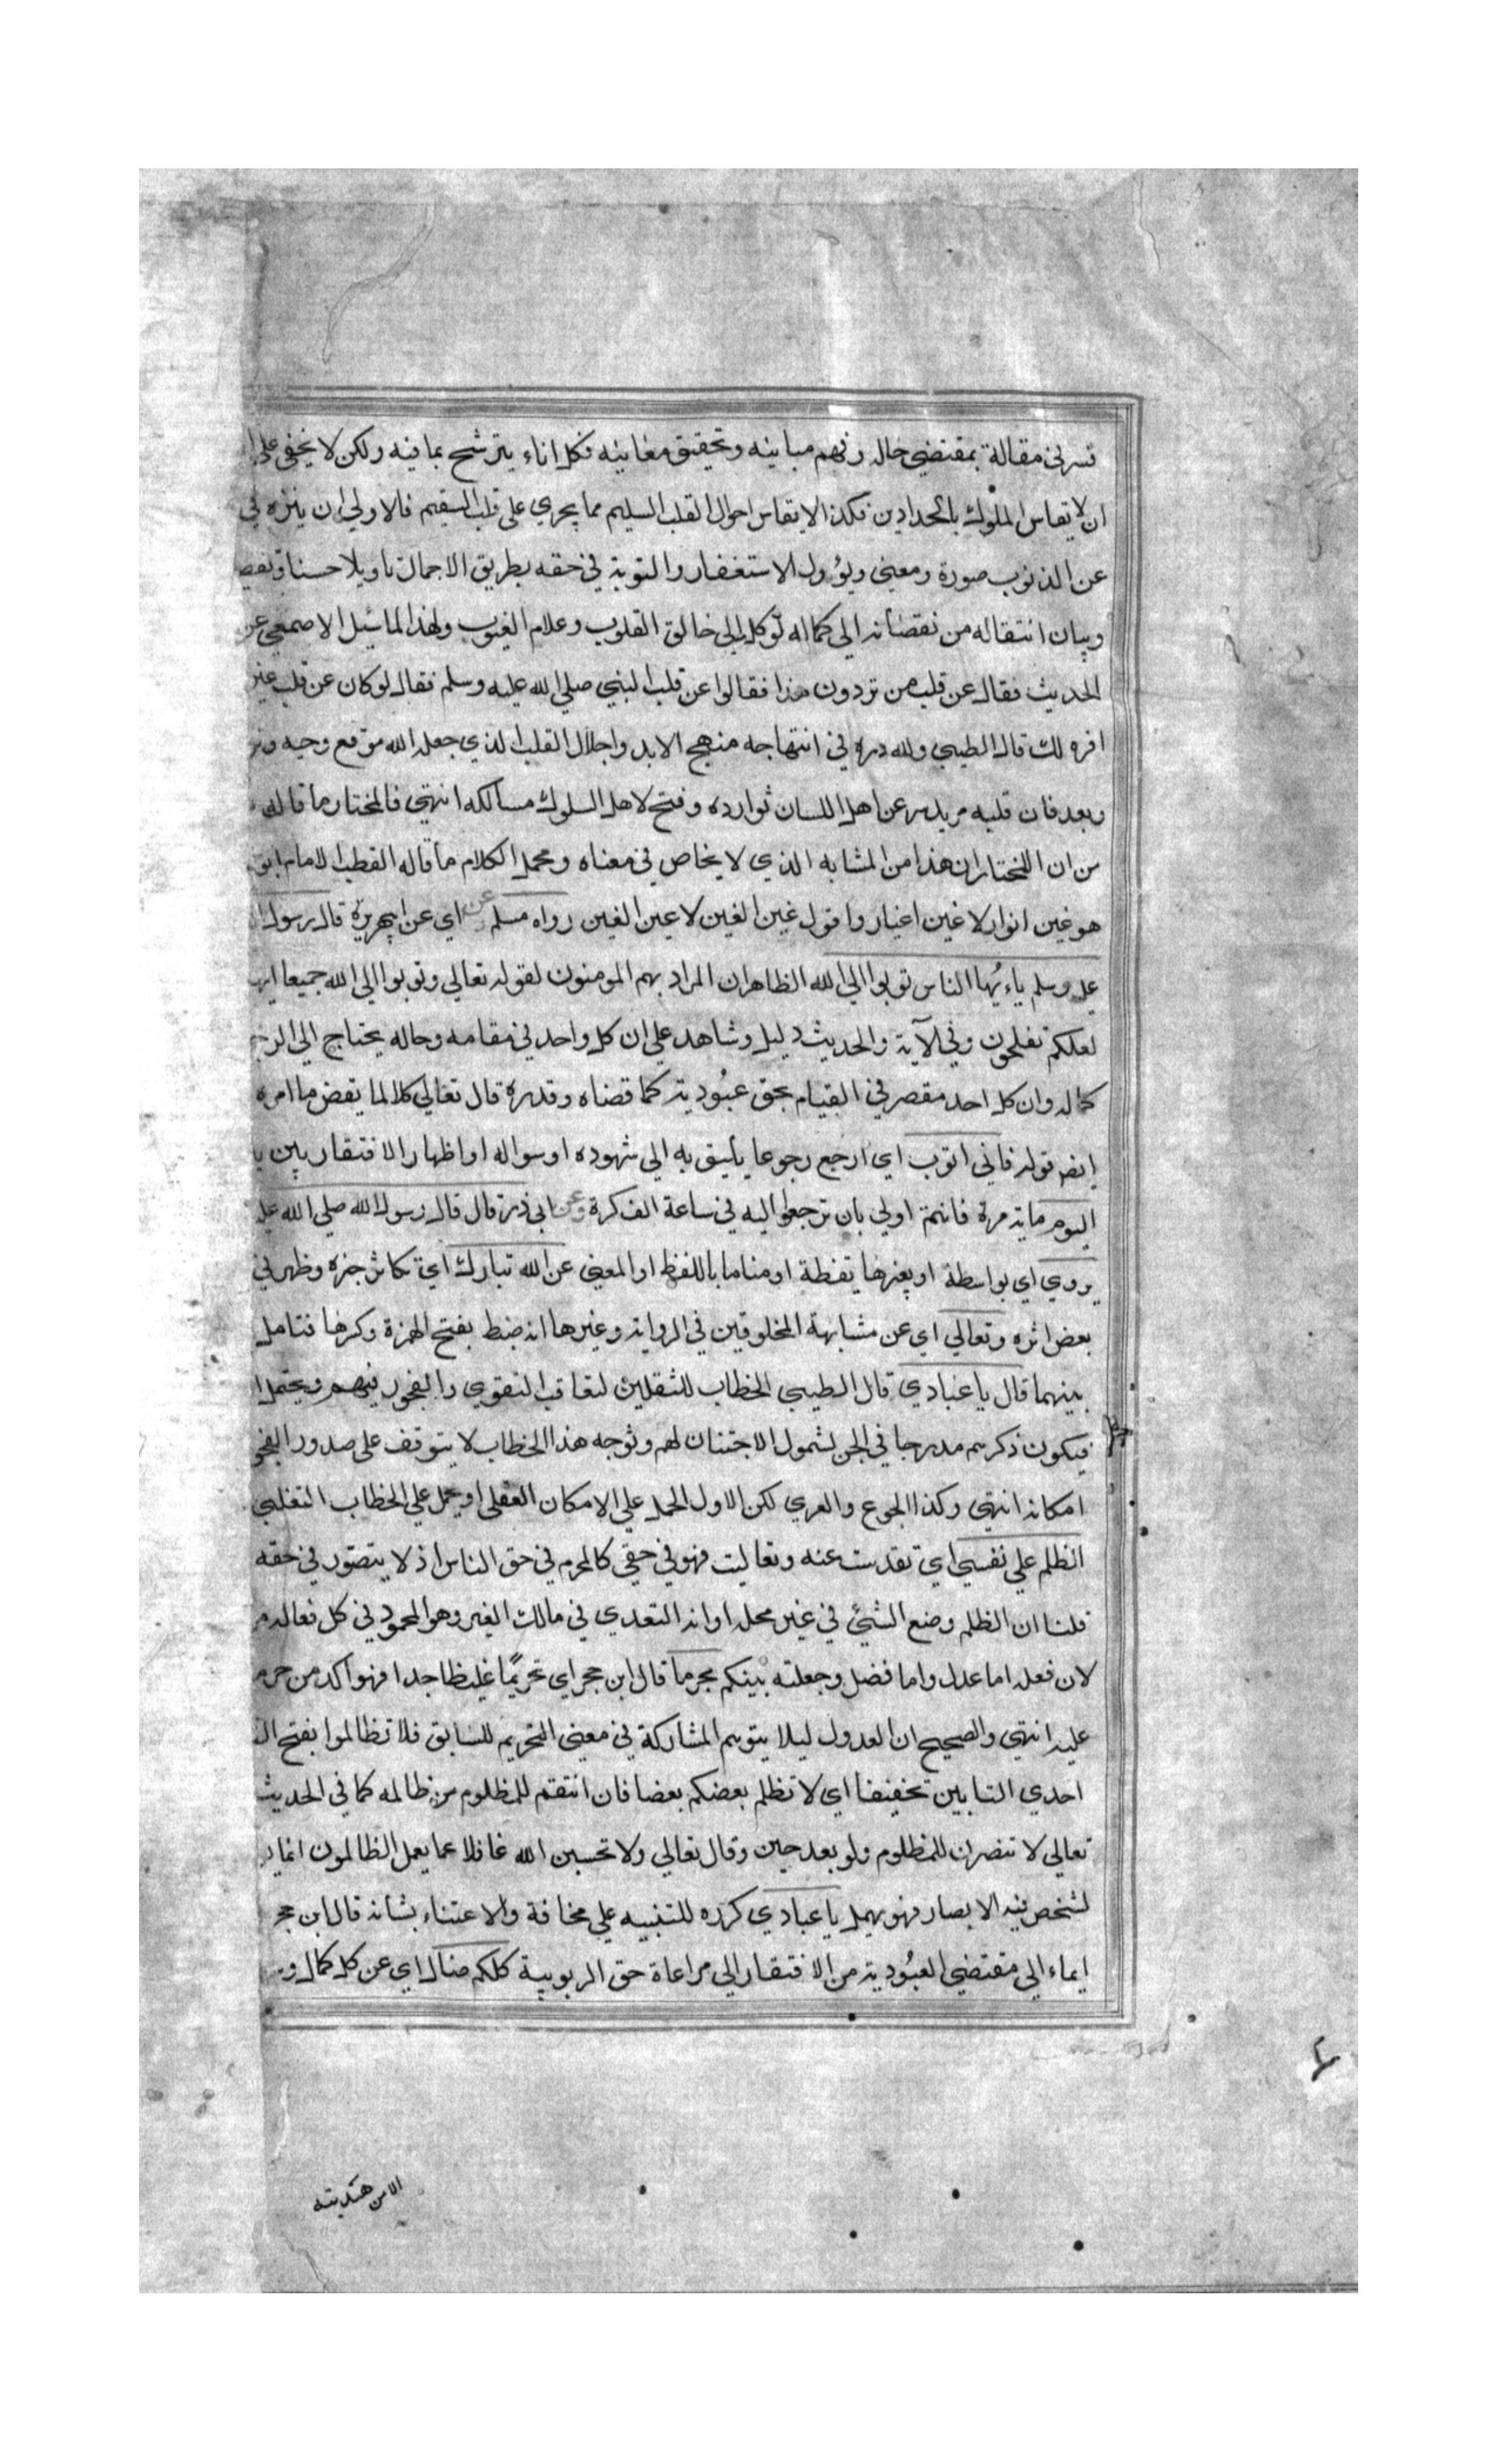 تسرني مقالة بمقتضي حاله وفهم مبانيه وتحقيق معانيه فكل اناء يترشح بما فيه ولكن لا يخفى على
ان لا يقاس الملوك بالحدادين فكذا لا يقاس احوال القلب السليم مما يجري على قلب السقيم فالاولي ان ينزه
عن الذنوب صورة ومعني ويؤول الاستغفار والتوبة في حقه بطريق الاجمال تاويلا حسنا
وبيان انتقاله من نقصانه الى كماله توكل الى خالق القلوب وعلام الغيوب ولهذا لما سئل الاصمعي عن
الحديث فقال عن قلب من تردون هذا فقالوا عن قلب النبي صلي الله عليه وسلم فقال لو كان عن قلب غير
افره لك قال الطيبي ولله دره في انتهاجه منهج الابد واجلال القلب الذي جعله الله موقع وحيه
وبعد فان قلبه مريد سر عن اهل اللسان توارده وفتح لاهل السلوك مسالكه انتهي فالمختار ما قاله
من ان المختار ان هذا من المشابه الذي لا يخاض في معناه ومجمل الكلام ما قاله القطب الامام ابو
هو غين انوار لا غين اغيار واقول غين الغين لا عين الغين رواه مسلم عن اي عن ابيهريرة قال رسول
عليه وسلم ياءيُها الناس توبوا الي الله الظاهر ان المراد بهم المومنون لقوله تعالي وتوبوا الي الله جميعا
لعلكم تفلحون وفي الآية والحديث دليل وشاهد علي ان كل واحد في مقامه وحاله يحتاج الي
كماله وان كل احد مقصر في القيام بحق عبُوديته كما قضاه وقدره قال تعالي كلا لما يقض ما امره
قوله فاني اتوب اي ارجع رجوعا يليق به الي شهوده او سواله او اظهار الافتقار بين
اليوم ماية مرة فانتم اولي بان ترجعوا اليه في ساعة الف كرة وعن ابي ذر قال قال رسول الله صلي الله
يروي اي بواسطة او بغيرها يقظة او مناما باللفظ او المعني عن الله تبارك اي تكاثر خيره وظهر في
بعض اثره وتعالي اي عن مشابهة المخلوقين في الرواية وغيرها انه ضبط بفتح الهمزة وكرها فتامل
بينهما قال يا عبادي قال الطيبي الخطاب للثقلين لتعاقب التقوي والفجور فيهم ويحتمل
فيكون ذكرهم مدرجا في الجن لشمول الاجتنان لهم وتوجه هذا الخطاب لا يتوقف على صدور
امكانه انتهي وكذا الجوع والعري لكن الاول الحمل علي الامكان العقلي او يحمل علي الخطاب التغلبي
الظلم علي نفسي اي تقدست عنه وتعاليت فهو في حقي كالمحرم في حق الناس اذ لا يتصور في حقه
قلنا ان الظلم وضع الشيئ في غير محله او انه التعدي في مالك الغير وهو المحمود في كل فعاله
لان فعله اما عدل واما فضل وجعلته بينكم محرما قال ابن حجر اي تحريمًا غليظا جدا فهو اكد من
عليه انتهي والصحيح ان العدول ليلا يتوهم المشاركة في معني التحريم للسابق فلا تظالموا بفتح
احدي التابين تخفيفا اي لا تظلم بعضكم بعضا فان انتقم للمظلوم من ظالمه كما في الحديث
تعالي لا تنصرن للمظلوم ولو بعد حين وقال تعالي ولا تحسبن الله غافلا عما يعمل الظالمون انما
لشخص فيه الابصار فهو يهمل يا عبادي كرره للتنبيه علي مخافة والاعتناء بشانه قال ابن حجر
ايماء الي مقتضي العبُودية من الافتقار الي مراعاة حق الربوبية كلكم ضال اي عن كل كمال